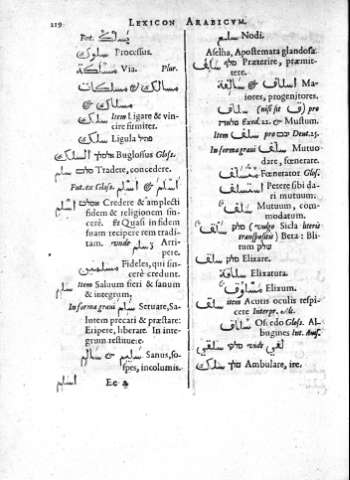 219. LEXICON ARABICVM.
Fut. يسلك
سلوك Processus.
مسلكة Via. Plur.
مسالك & مسلكات
& مسلاك
سلك Item Ligare & vin-
cire firmiter.
سلك Ligula
السلك Buglossus Gloss.
سلم Tradere, concedere.
Fut. ex Gloss. اسلم & اسلم
اسلم Credere & amplecti
fidem & religionem sin-
cerè. & Quasi in fidem
suam recipere rem tradi-
tam. unde سلم Arri-
pere.
مسلمين Fideles, qui sin-
cerè credunt.
سلم Item Saluum fieri & sanum
& integrum,
In forma graui سلم Seruare, Sa-
lutem precari & præstare:
Eripere, liberare. In inte-
grum restituere.
سليم & سالم Sanus, so-
spes, incolumis.
اسلم Ee 2
سلم Nodi.
Aselha, Apostemata glandosa.
سلف Præterire, præmit-
tere.
اسلاف & سالفة Ma-
iores, progenitores.
سلف (nisi sit ف) pro
Exod. 22. & Mustum.
Item سلف pro Deut. 25.
In forma graui سلف Mutuo-
dare, fœnerare.
مسلف Fœnerator Gloss.
استسلف Petere sibi da-
ri mutuum.
سلف Mutuum, com-
modatum.
سلق (vulgo Sicla literis
transpositis) Beta: Bli-
tum
سلق Elixare.
سلاقة Elixatura.
مسلوق Elixum.
سلق item Acutis oculis respi-
cere Interpr. Alc.
سلاق Oscedo Gloss. Al-
bugines Int. Auis.
سلقي vide لقي
سلك Ambulare, ire.